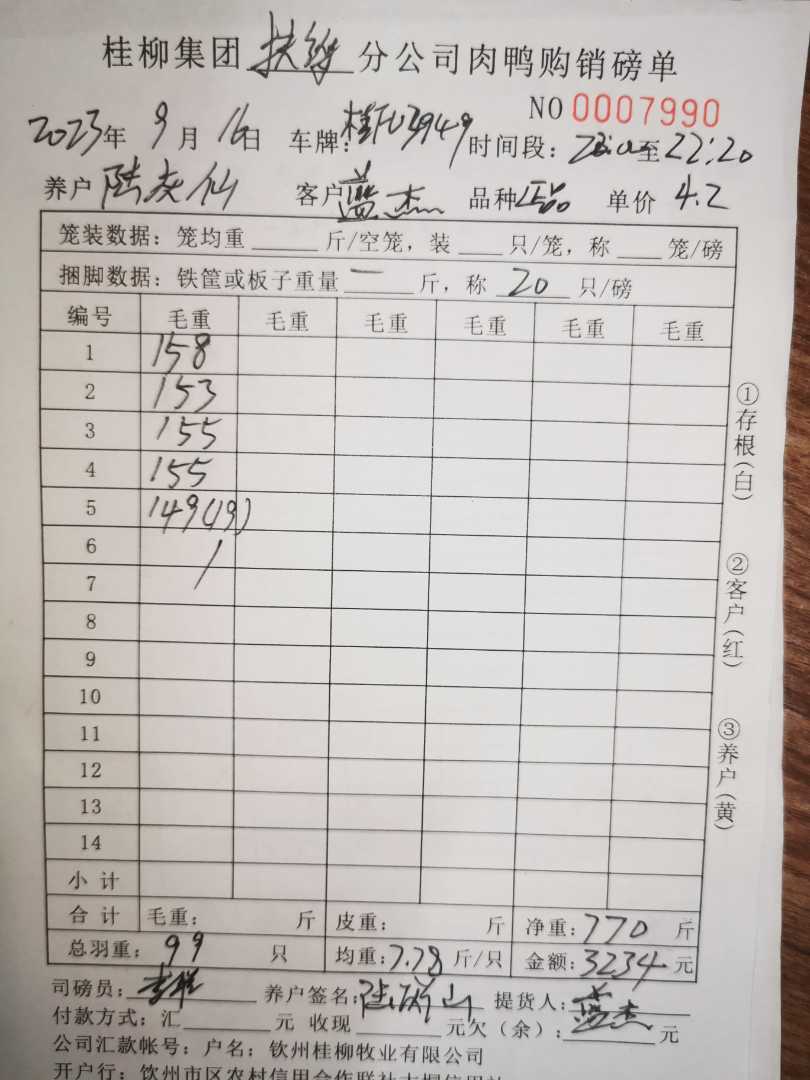 桂柳集团扶绥分公司肉鸭购销磅单
NO 0007990
2023年 9月 16日 车牌:桂FU3949 时间段: 至22:20
养户 陆灰仙 客户 蓝杰 品种 正品 单价 4.2
笼装数据: 笼均重 斤/空笼, 装 只/笼, 称 笼/磅
捆脚数据: 铁筐或板子重量 一 斤, 称 20 只/磅
编号 毛重 毛重 毛重 毛重 毛重 毛重
1 158
2 153
3 155
4 155
5 149(19)
6 /
7
8
9
10
11
12
13
14
小计
合计 毛重: 斤 皮重: 斤 净重:770 斤
总羽重: 99 只 均重:7.78 斤/只 金额:3234 元
司磅员: 养户签名: 提货人:蓝杰
付款方式: 汇 元 收现 元欠(余): 元
公司汇款帐号: 户名: 钦州桂柳牧业有限公司
开户行: 钦州市区农村信用合作联社
①存根(白)
②客户(红)
③养户(黄)